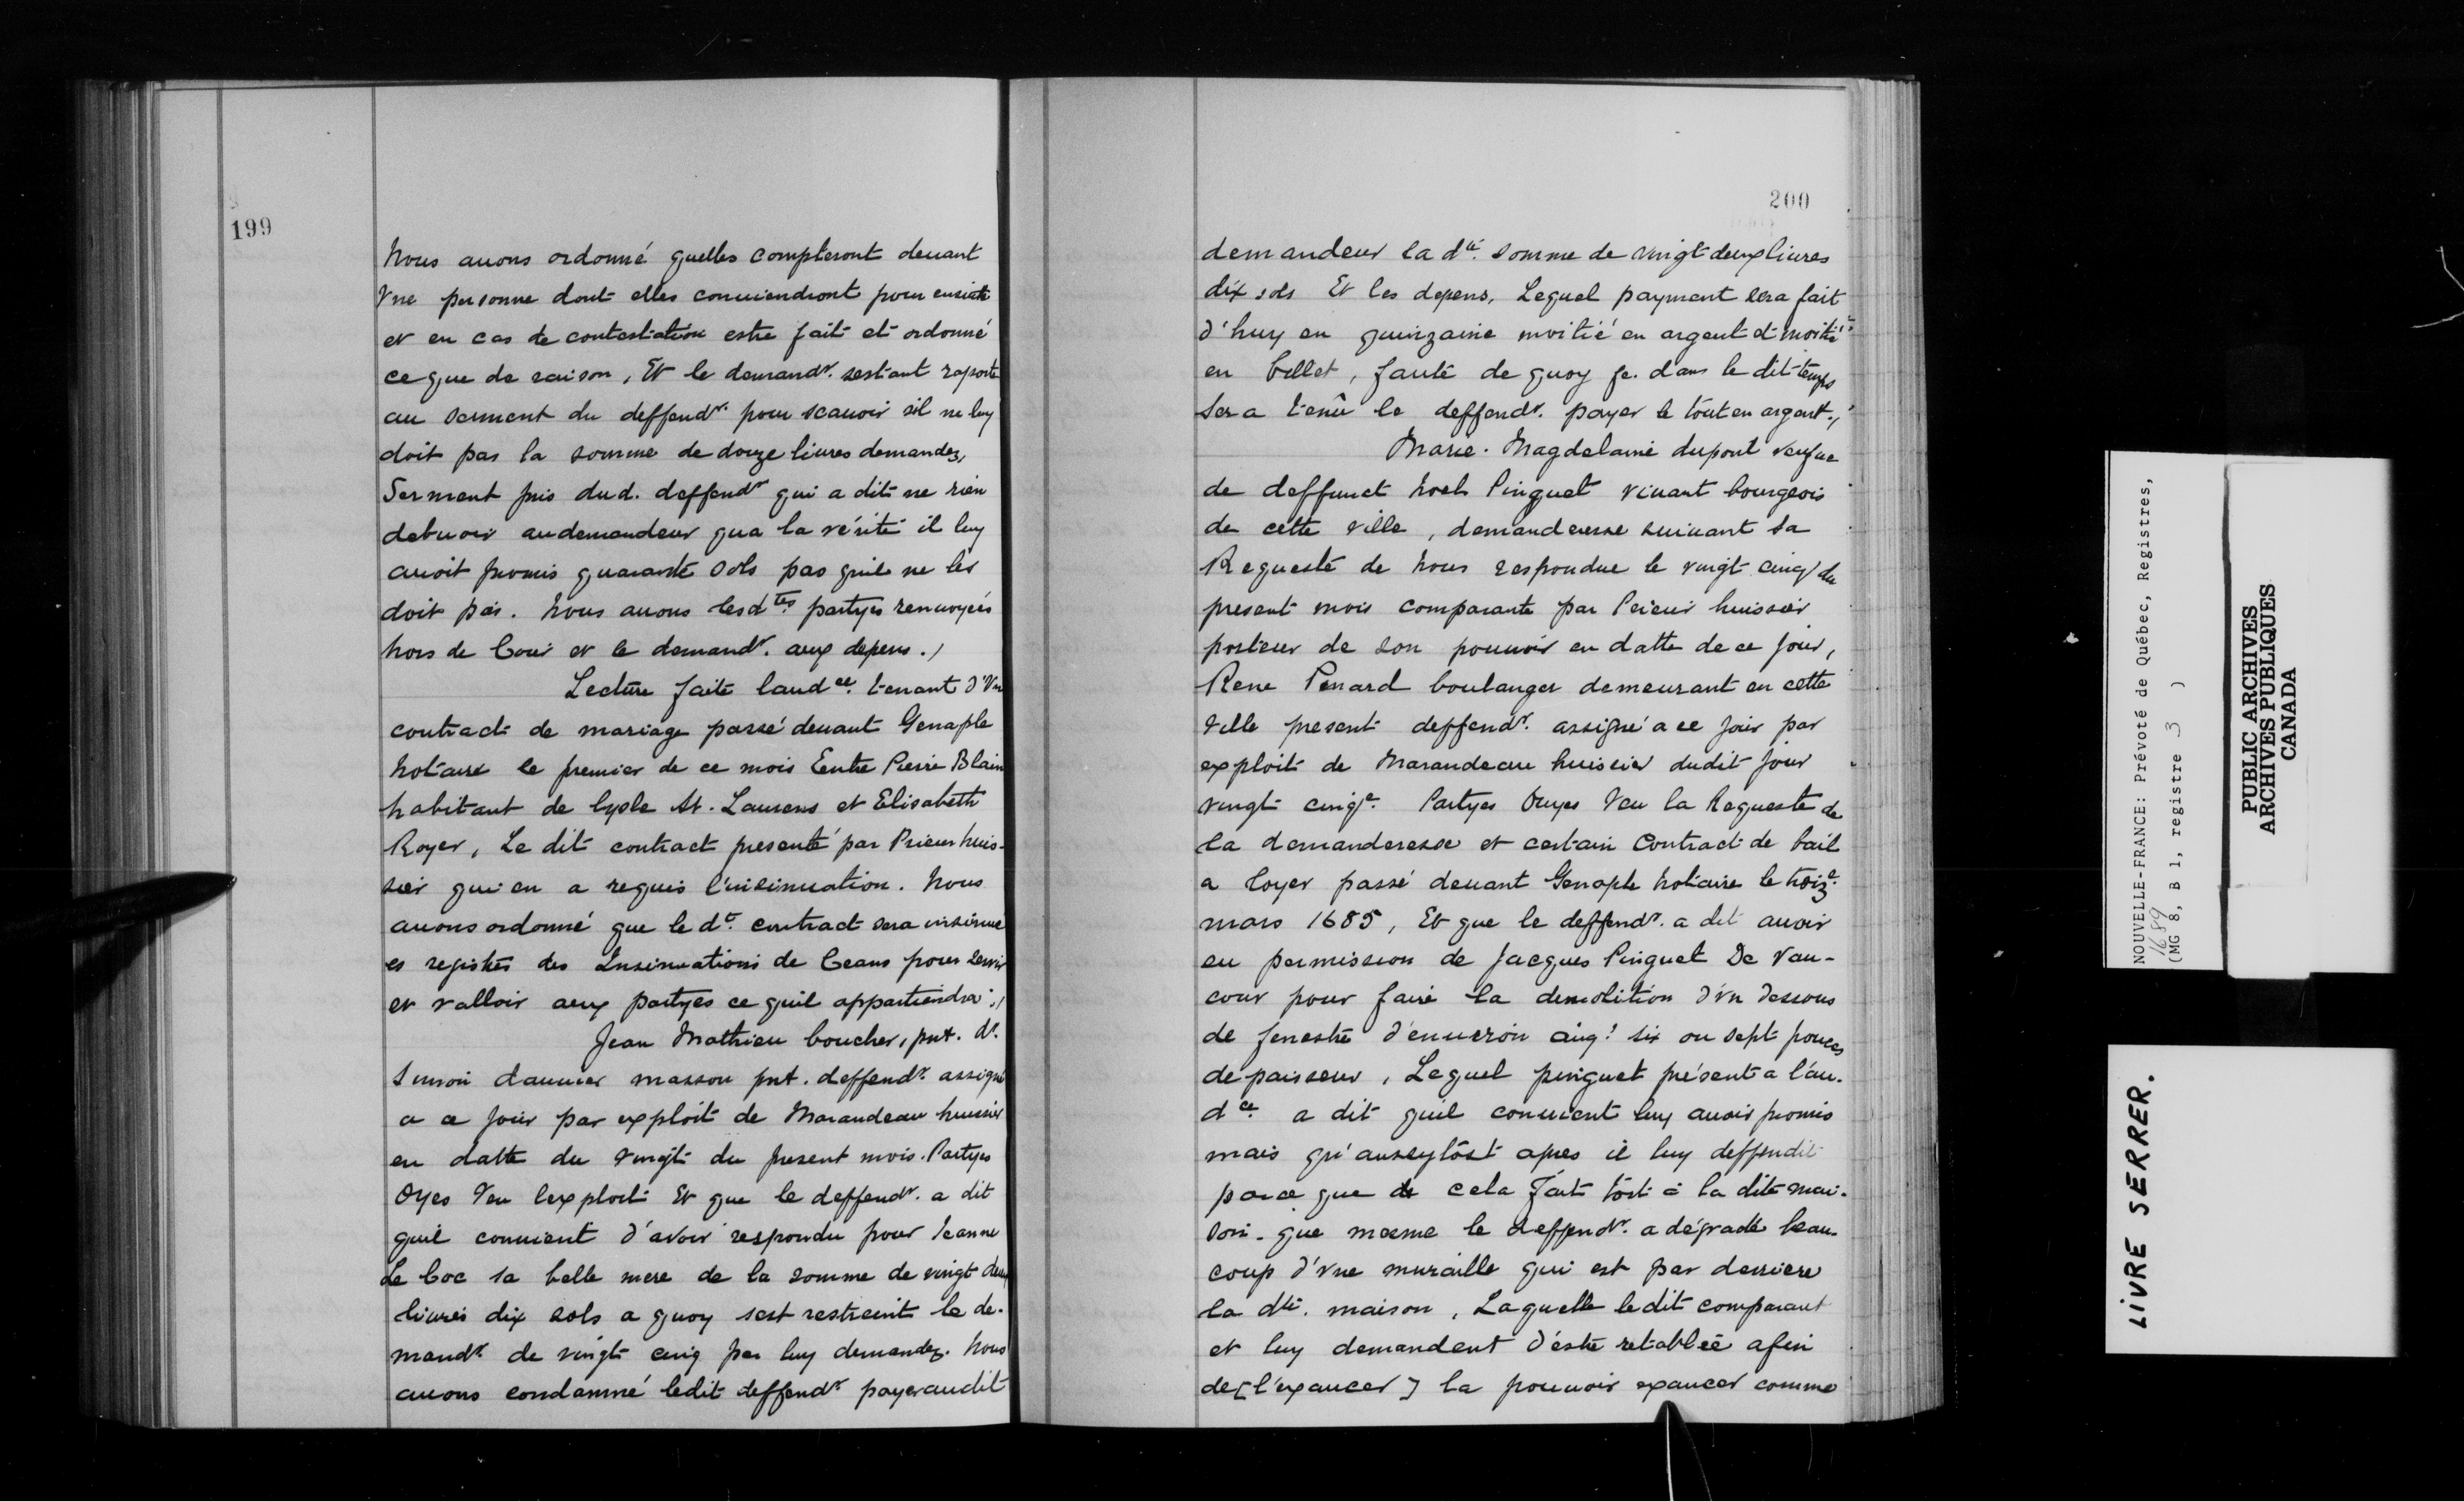 199
Nous auons ordonné quelles compteront deuant
Vne personne dont elles conuiendront pour ensuite
et en cas de contestation estre fait et ordonné
ce que de raison, Et le demandr. sestant raporté
au serment du deffendr. pour scauoir sil ne luy
doit pas la somme de douze liures demandez,
Serment pris dud. deffendr qui a dit ne rien
debuoir audemandeur qua la vérité il luy
auoit promis quarante sols pas quil ne les
doit pas. Nous auons lesdtes partyes renuoyées
hors de Cour et le demandr. aux depens./
Lecture faite laudce. tenant d'Vn
contract de mariage passé deuant Genaple
Notaire le premier de ce mois Entre Pierre Blain
habitant de lysle St. Laurens et Elisabeth
Royer, Le dit contract presenté par Prieur huis-
sier qui en a requis l'insinuation. Nous
auons ordonné que le dt. contract sera insinué
es registres des Insinuations de Ceans pour seruir
et valloir aux partyes ce quil appartiendra./
Jean Mathieu boucher, pnt. dr.
Simon dauuier masson pnt. deffendr. assigné
a ce jour par exploit de Marandeau huissier
en datte du vingt du present mois. Partyes
Oyes Veu lexploit Et que le deffendr. a dit
quil conuient d'avoir respondu pour Jeanne
Le Coc sa belle mere de la somme de vingt deux
liures dix sols a quoy sest restreint le de-
mandr. de vingt cinq par luy demandez. Nous
auons condamné ledit deffendr payeraudit
200
demandeur la dte. somme de vingt deux liures
dix sols Et les depens, Lequel payment sera fait
d'huy en quinzaine moitié en argent et moitié
en billet, faute de quoy fe. dans le dit temps
sera tenû le deffendr. payer le tout en argent./
Marie. Magdelaine dupont veufue
de deffunct Noel Pinguet viuant bourgeois
de cette ville, demanderesse suiuant sa
Requeste de Nous respondue le vingt cinq du
present mois comparante par Prieur huissier
porteur de son pouuoir en datte de ce jour,
Rene Penard boulanger demeurant en cette
Ville present deffendr. assigné a ce jour par
exploit de Marandeau huissier dudit jour
vingt cinqe. Partyes Ouyes Veu la Requeste de
la demanderesse et certain Contract de bail
a loyer passé deuant Genaple Notaire le troize.
mars 1685, Et que le deffendr. a dit auoir
eu permission de Jacques Pinguet De Vau-
cour pour faire la demolition d'vn dessous
de fenestre d'enuiron cinq! six ou sept pouces
depaisseur, Lequel pinguet présent a l'au-
dce. a dit quil conuient luy auoir promis
mais qu'ausytôst apres il luy deffendit
parce que de cela fait tort à la dite mai-
son. que mesme le deffendr. a dégradé beau-
coup d'vne muraille qui est par derriere
la dte. maison, Laquelle ledit comparant
et luy demandent d'estre retablié afin
de [l'exaucer] la pouuoir exaucer comme
NOUVELLE-FRANCE: Prévoté de Québec, Registres,
1689
(MG 8, B 1, registre 3 )
PUBLIC ARCHIVES
ARCHIVES PUBLIQUES
CANADA
LIVRE SERRER.